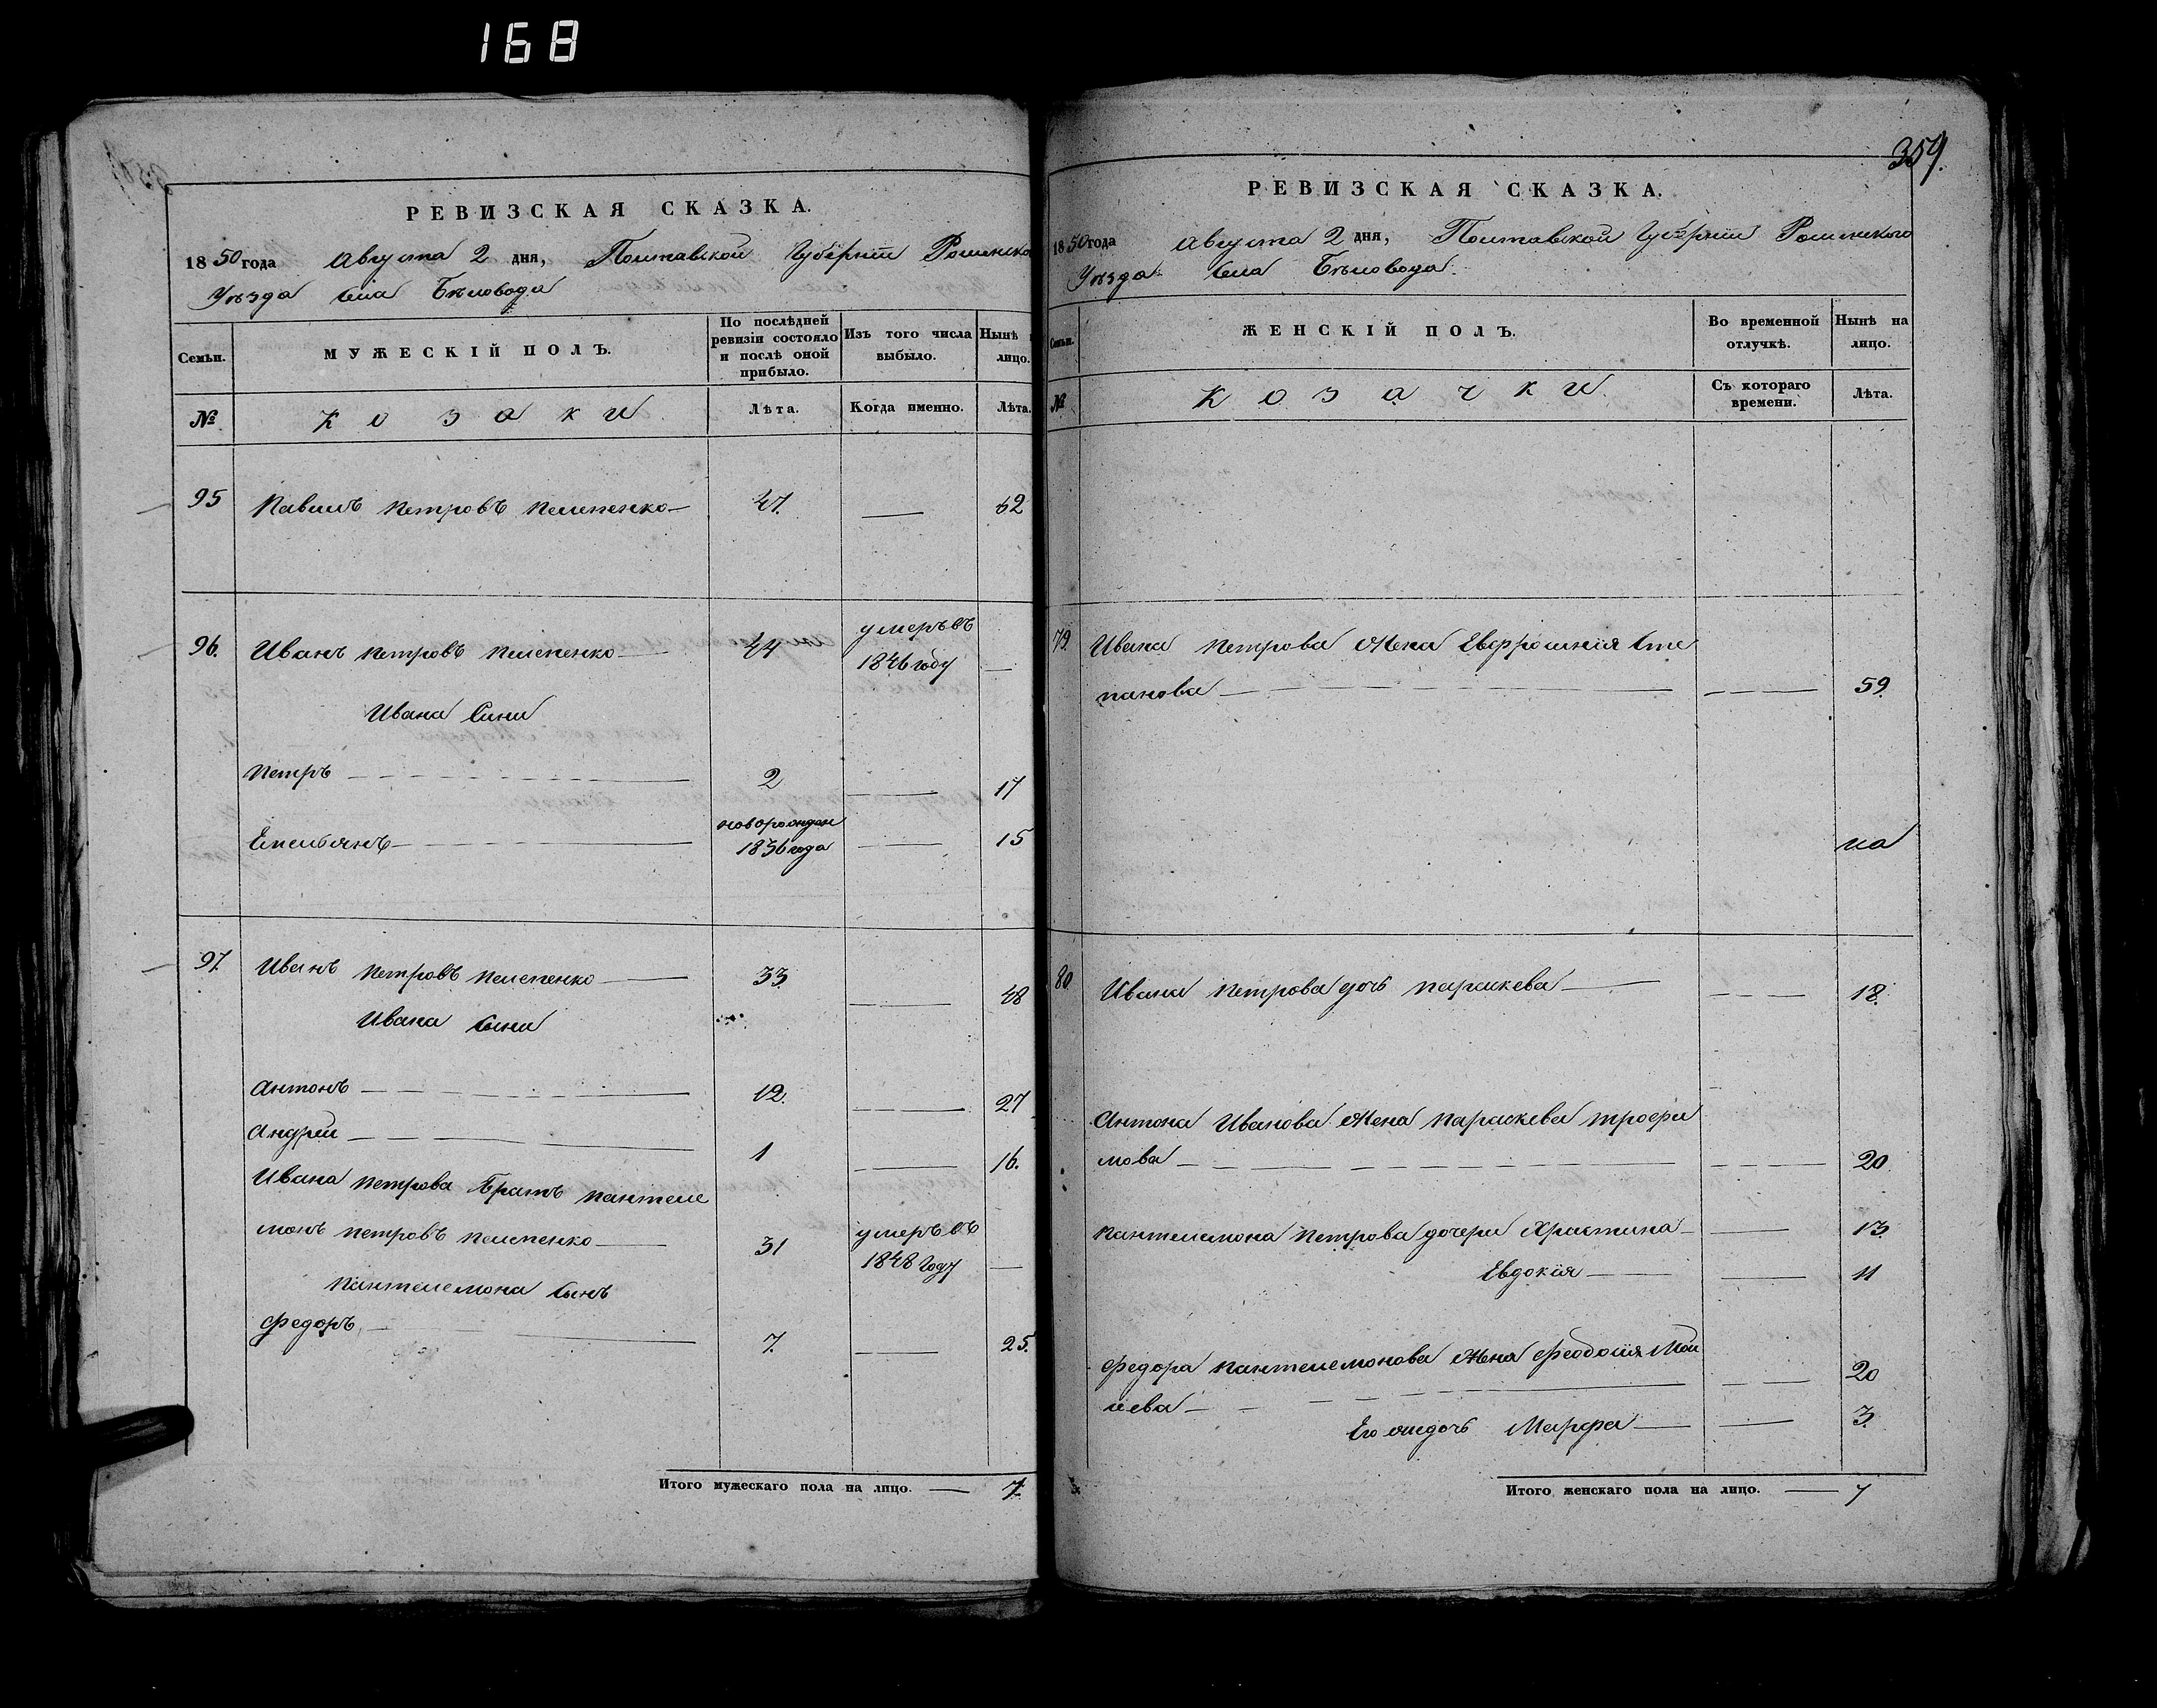 168
РЕВИЗСКАЯ СКАЗКА.
1850 года Августа 2 дня, Полтавской Губерніи Роменско
Уѣзда Села Бѣловода
Семьи.
МУЖЕСКІЙ ПОЛЪ.
По послѣдней ревизіи состояло и послѣ оной прибыло.
Изъ того числа выбыло.
Нынѣ
лицо.
№
Козаки
Лѣта.
Когда именно.
Лѣта.
95 Павелъ Петровъ 47. —
96. Иванъ Петровъ 44 умеръ въ 1846 году —
Ивана Сыни
Петръ — 2 — 17
Емельянъ — новорожден 1836 года — 15
97. Иванъ Петровъ 33 — 48
Ивана Сыни
Антонъ — 12. — 27
Андрей — 1 — 16.
Ивана Петрова Братъ Пантеле
монъ Петровъ 31 умеръ въ 1848 Году —
Пантелемона Сынъ
Федоръ — 7. — 25.
Итого мужескаго пола на лицо. — 7
359.
РЕВИЗСКАЯ СКАЗКА.
1850 года Августа 2 дня, Полтавской Губерніи Роменского
Уѣзда Села Бѣловода.
Семьи.
ЖЕНСКІЙ ПОЛЪ.
Во временной отлучкѣ.
Нынѣ на лицо.
№
Козачки.
Съ котораго времени.
Лѣта.
79. Ивана Петрова Жена Евфросинія Сте
панова — — 59.
80 Ивана Петрова дочь Параскева — — 18.
Антона Иванова Жена Параскева Трофи
мова — — 20
Пантелемона Петрова дочери Христина — — 13.
Евдокія — — 11
Федора Пантелемонова Жена Феодосія Мои
сіева — — 20
Его жъ дочь Марфа — — 3.
Итого женскаго пола на лицо. — 7